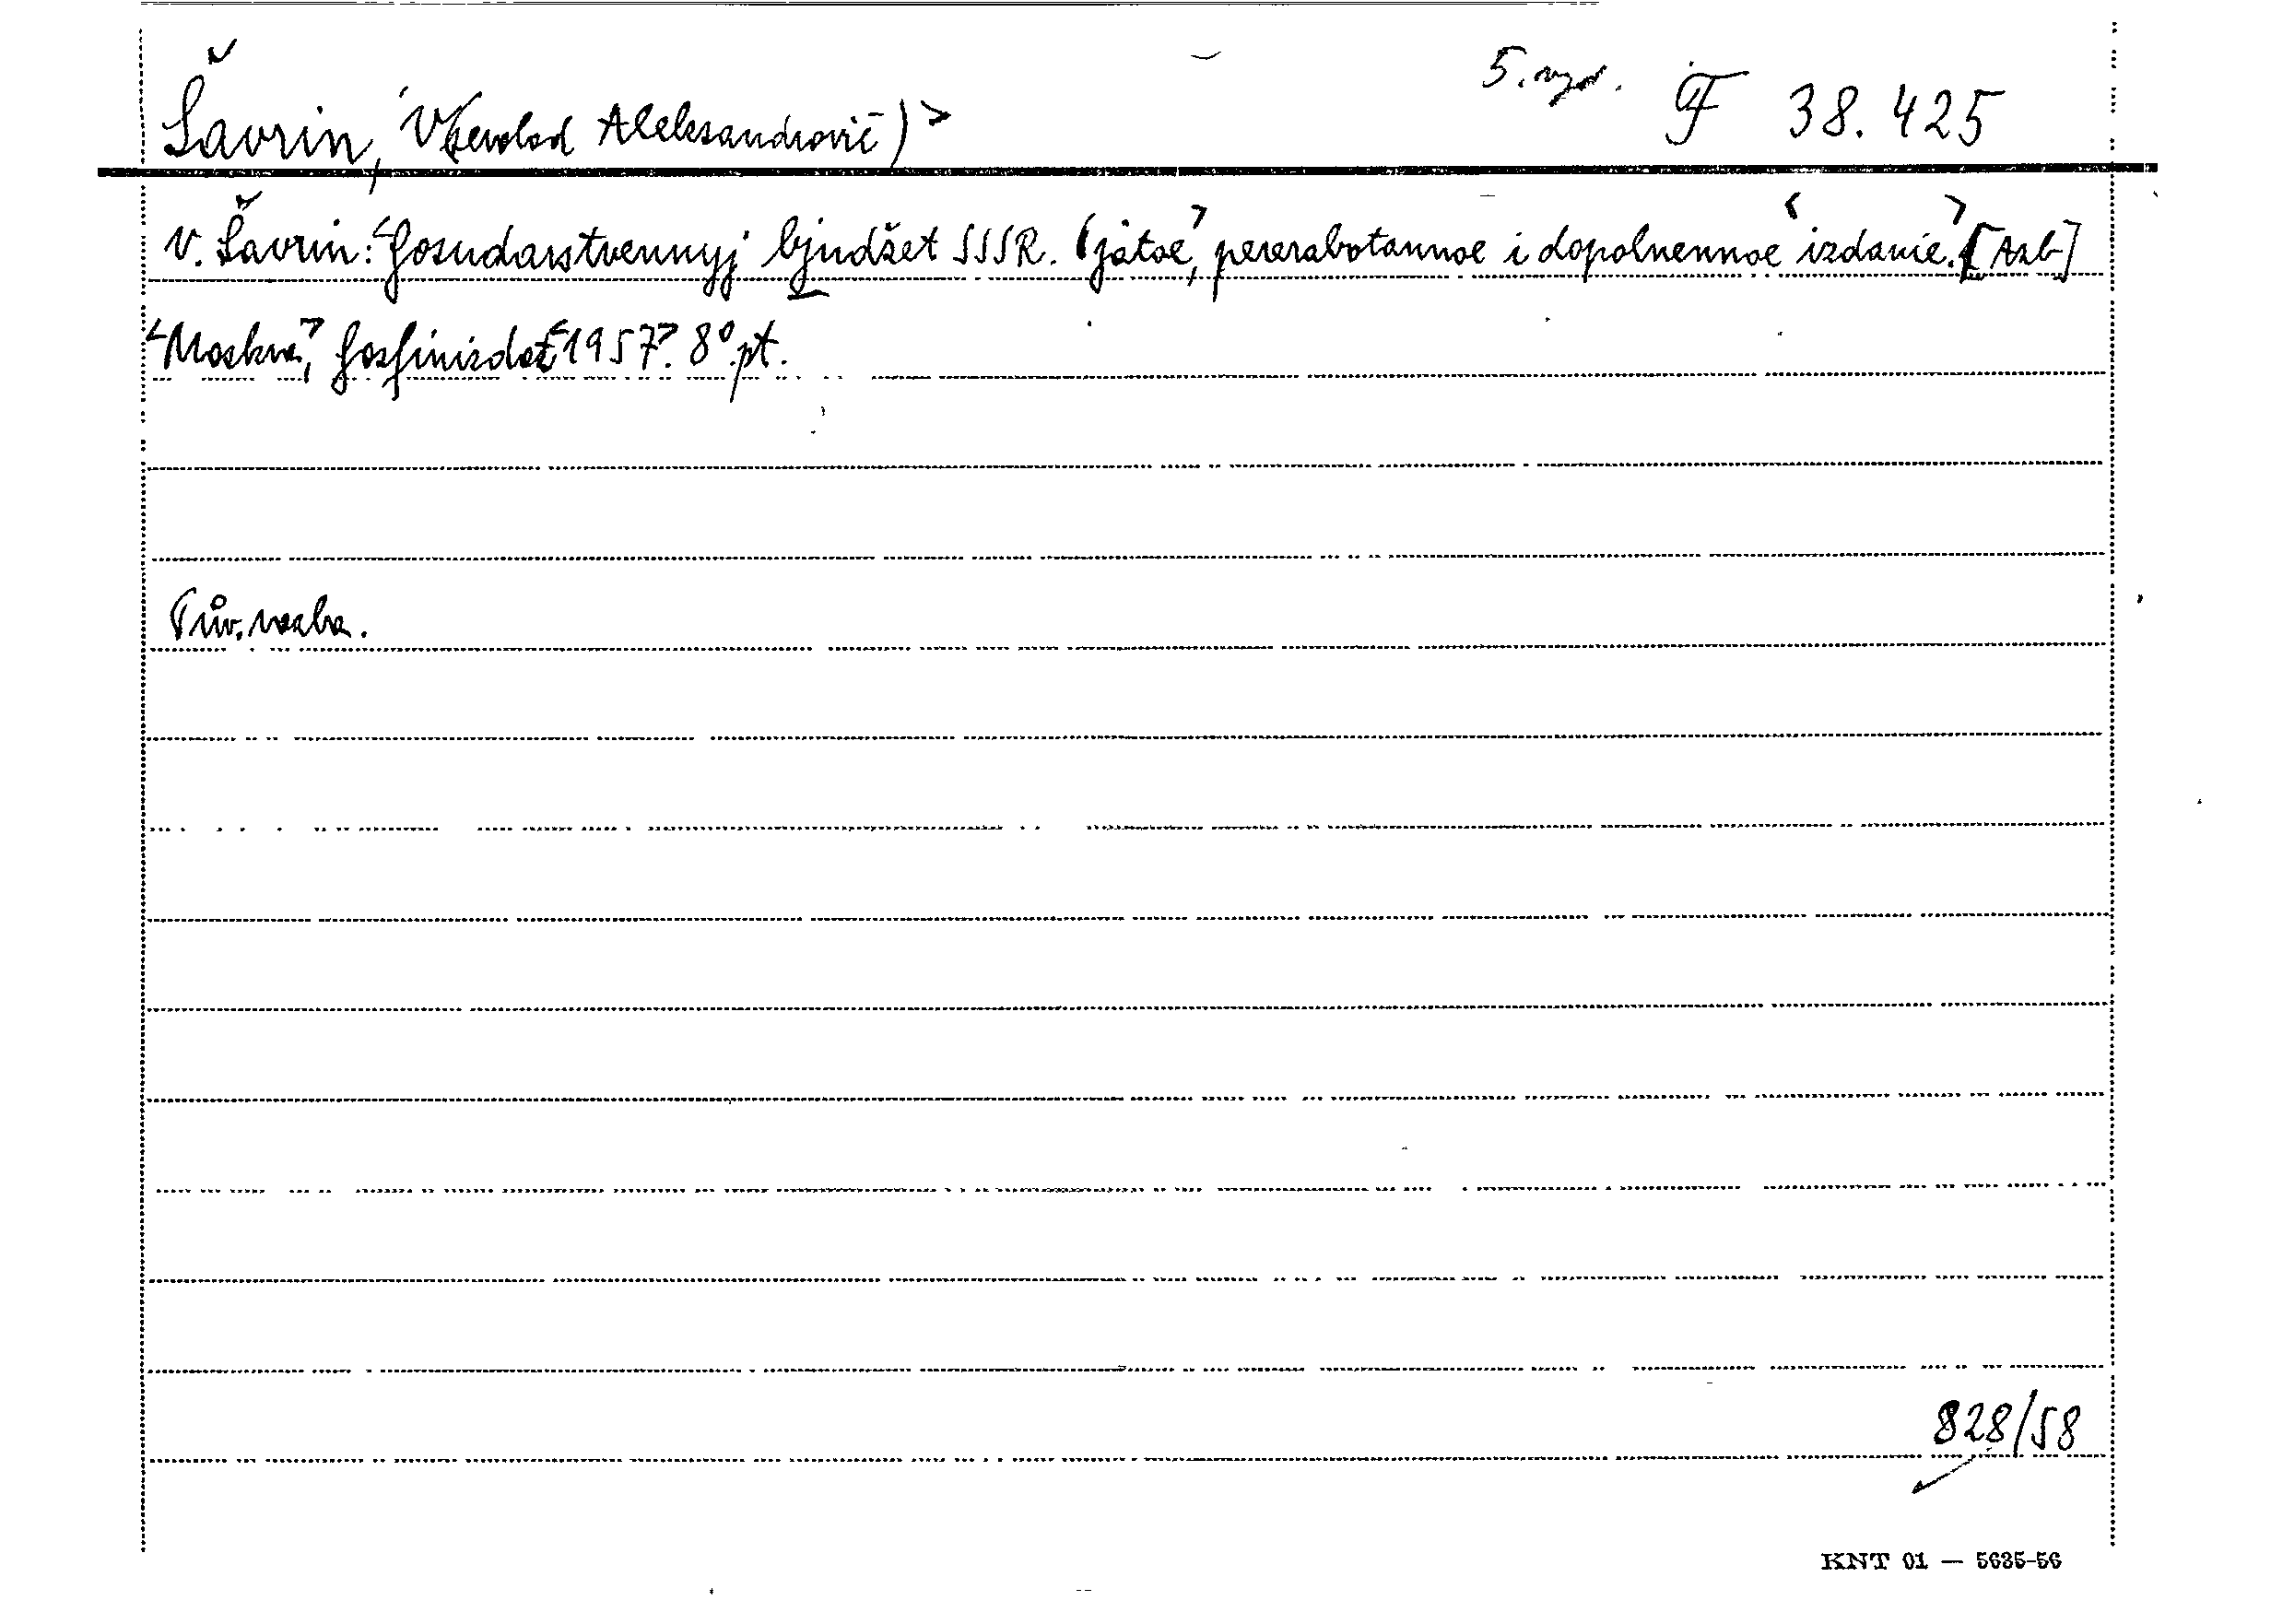 5. vyd. F 38.425
Šavrin, V(sevolod Aleksandrovič)>
V. Šavrin: <Gosudarstvennyj bjudžet SSSR. (jatoe>, pererabotannoe i dopolnennoe <izdanie>. [Azb]
<Moskva>, Gosfinizdat <1957>. 8° pt.
Pův. vazba.
828/58
KNT 01 — 5635-56